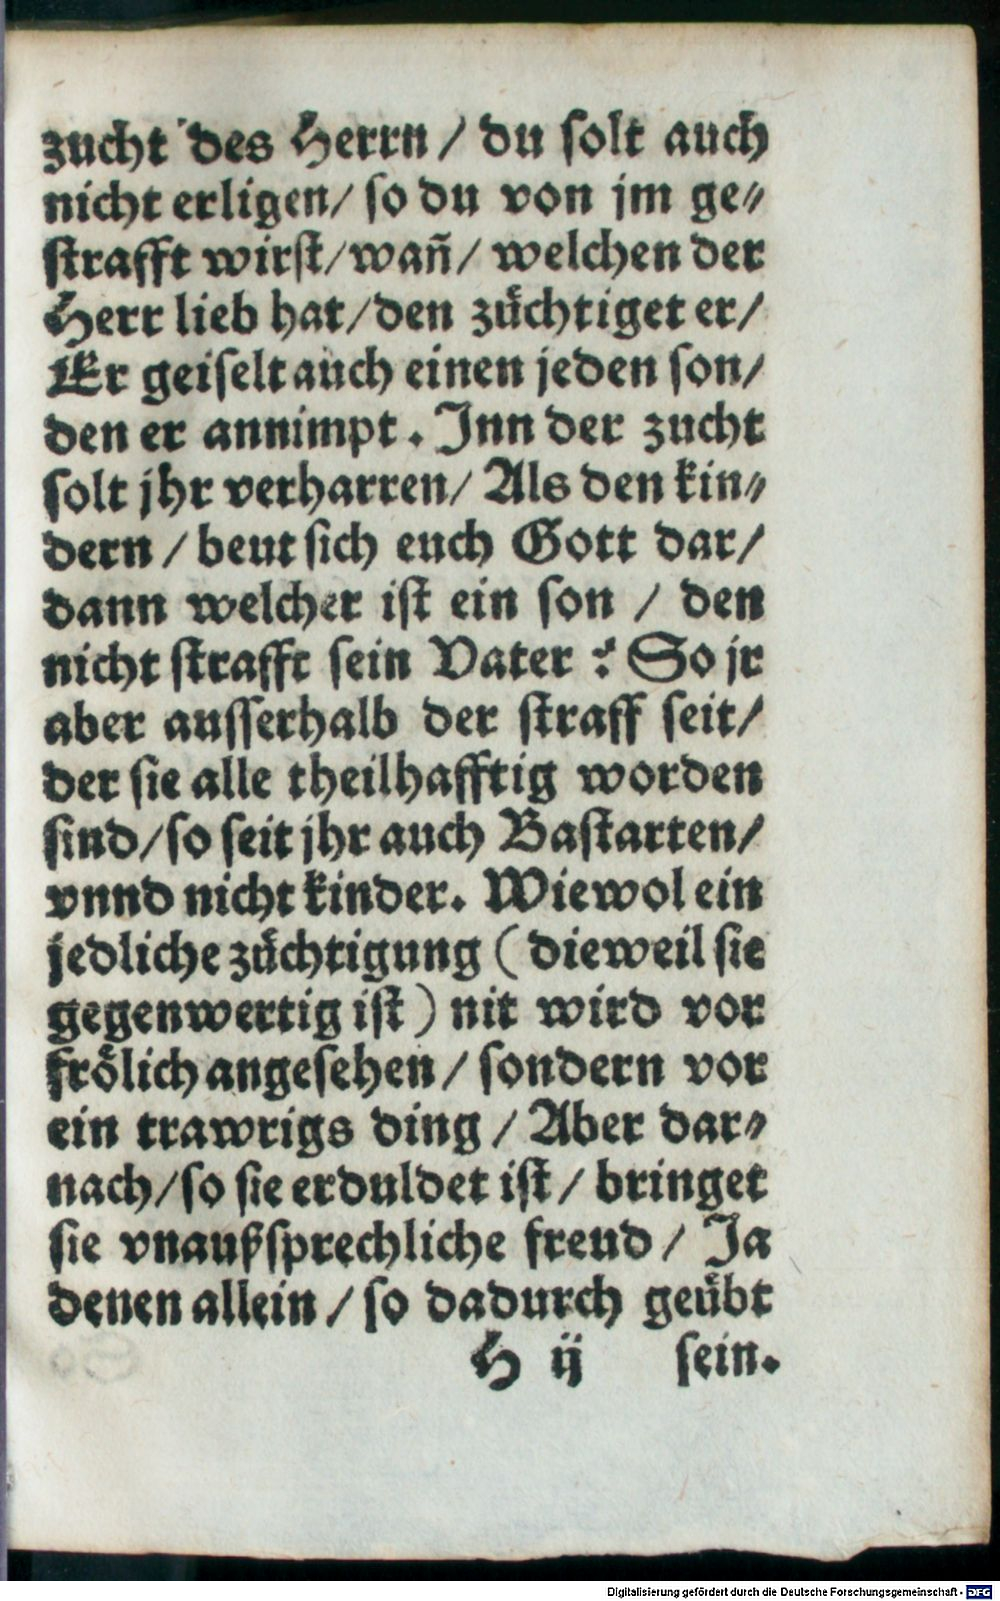 zucht des Herrn / du solt auch
nicht erligen / so du von jm ge⸗
strafft wirst / wañ / welchen der
Herr lieb hat / den zuͤchtiget er /
Er geiselt auch einen jeden son /
den er annimpt. Inn der zucht
solt jhr verharren / Als den kin⸗
dern / beut sich euch Gott dar /
dann welcher ist ein son / den
nicht strafft sein Vater? So jr
aber ausserhalb der straff seit /
der sie alle theilhafftig worden
sind / so seit jhr auch Bastarten /
vnnd nicht kinder. Wiewol ein
jedliche zuͤchtigung (dieweil sie
gegenwertig ist) nit wird vor
froͤlich angesehen / sondern vor
ein trawrigs ding / Aber dar⸗
nach / so sie erduldet ist / bringet
sie vnaußsprechliche freud / Ja
denen allein / so dadurch geuͤbt
H ij sein.
Digitalisierung gefördert durch die Deutsche Forschungsgemeinschaft - DFG